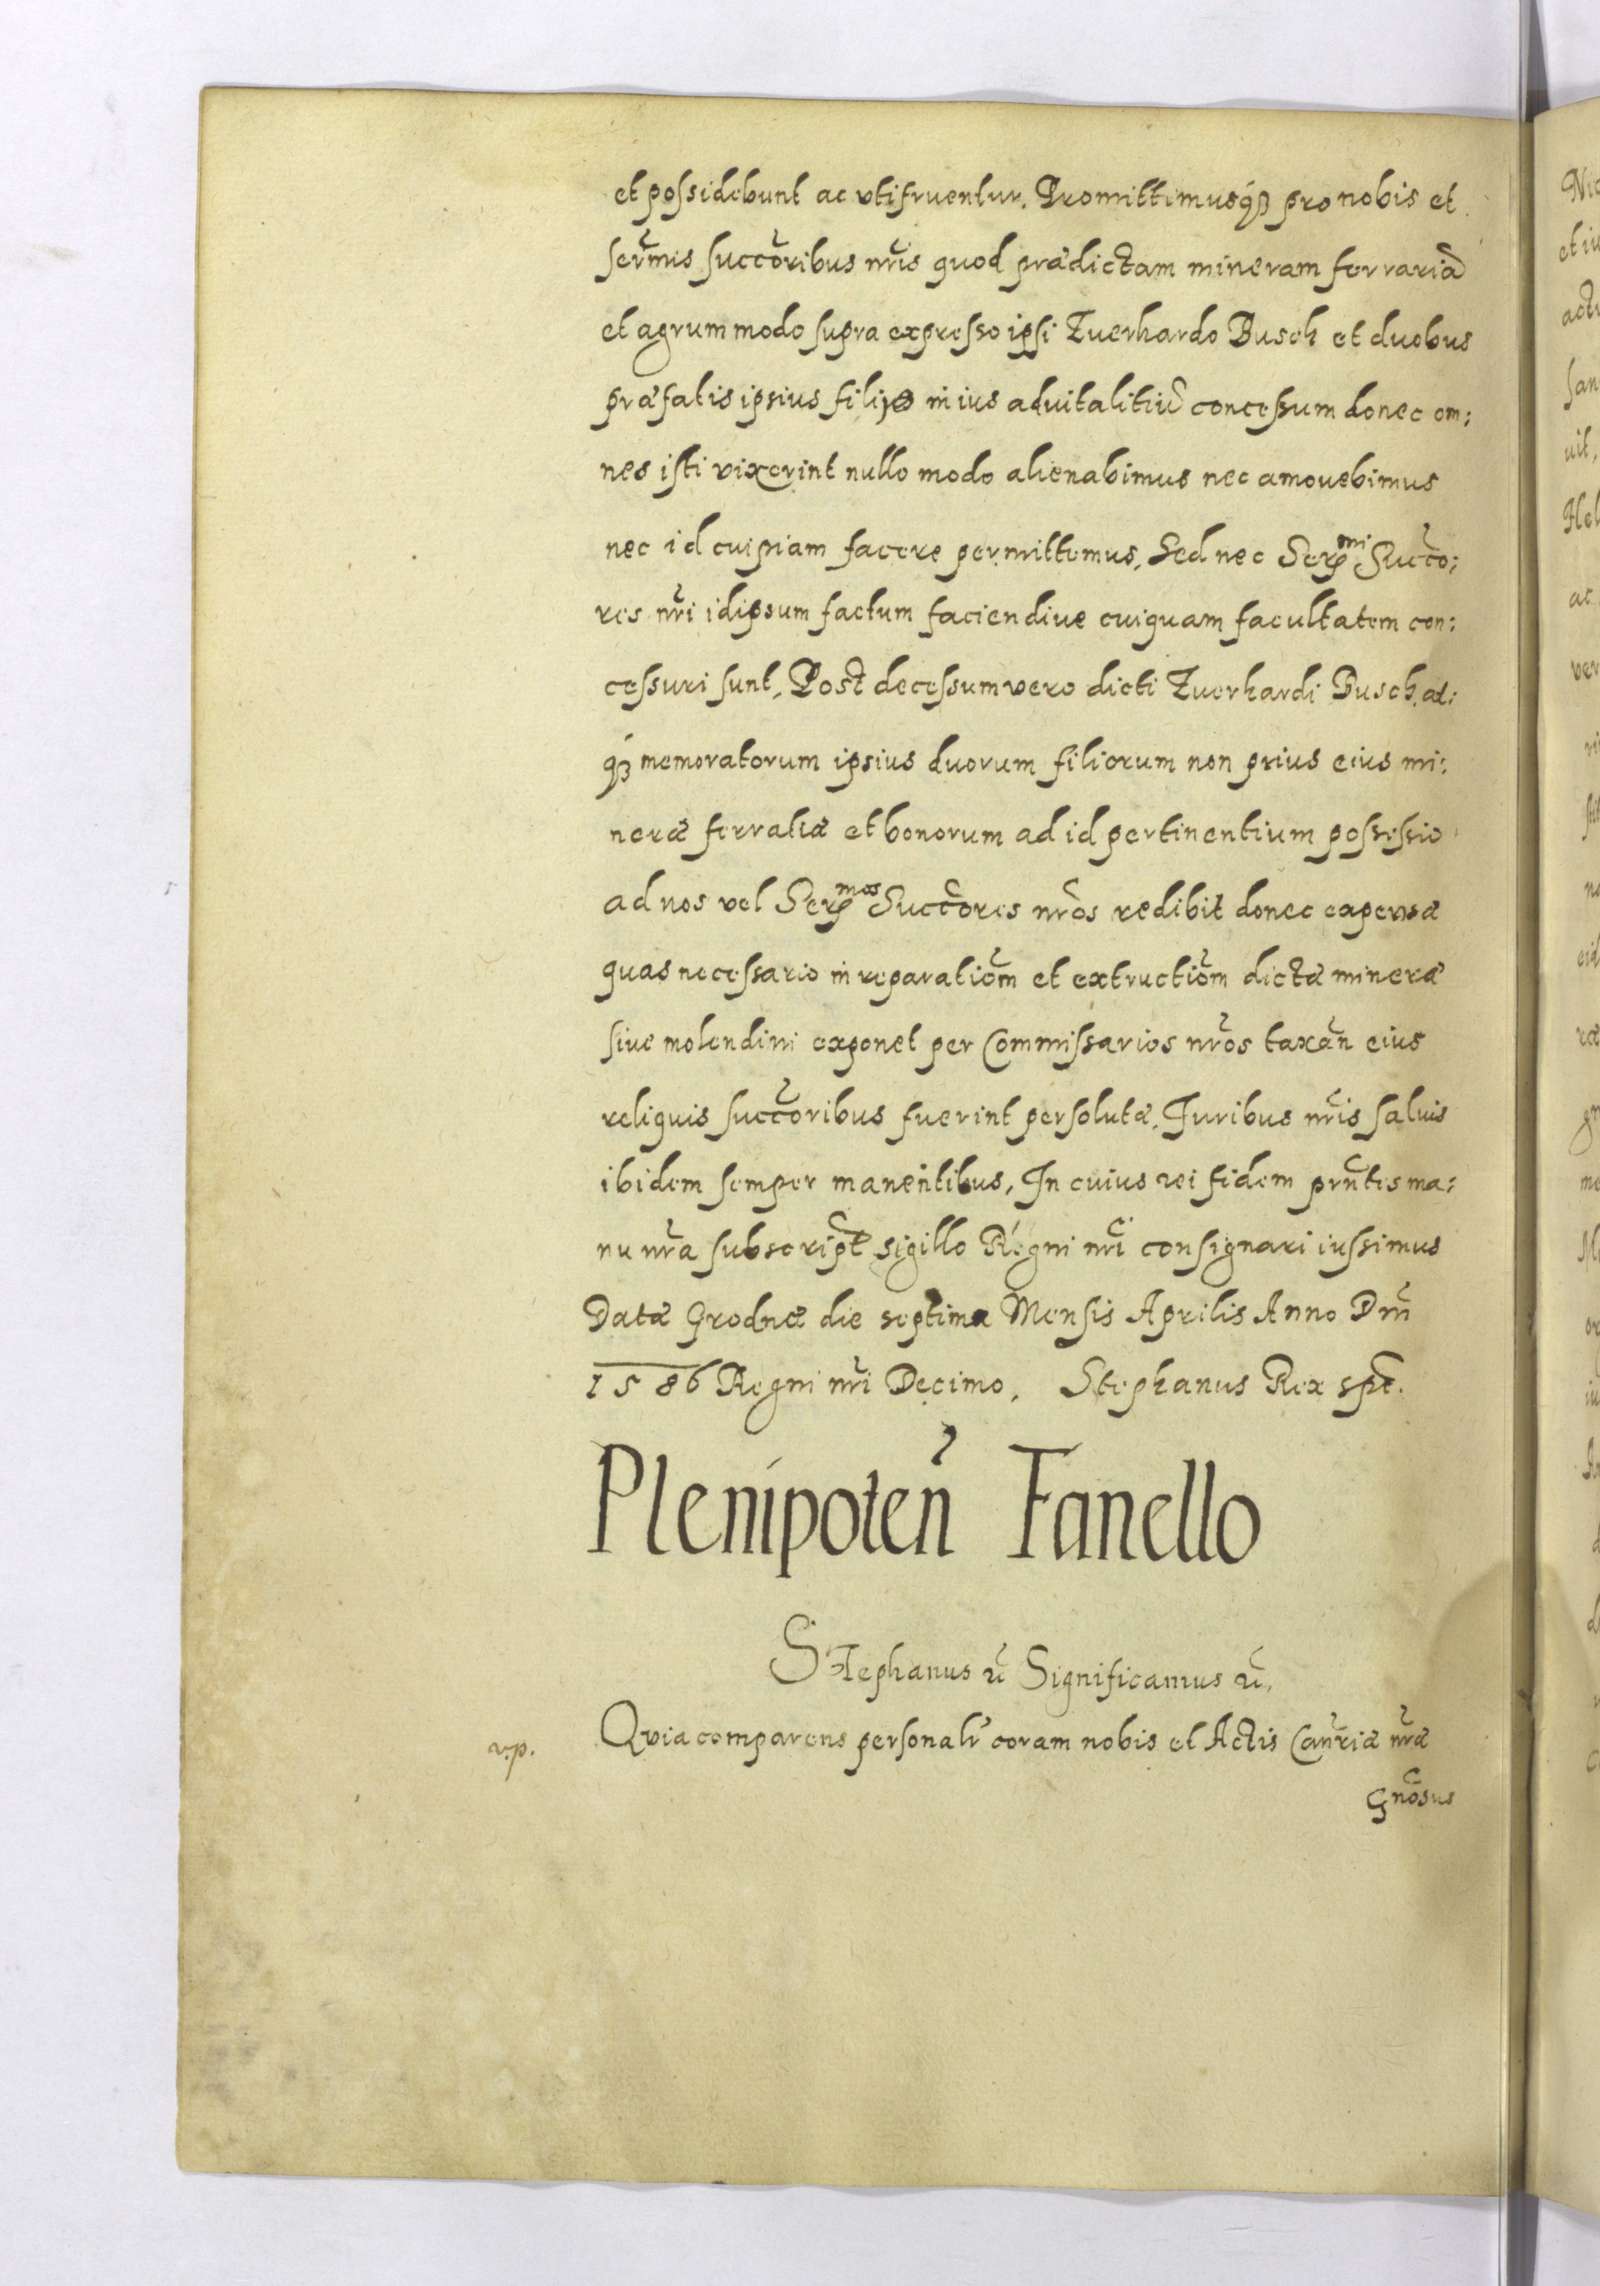 et possidebunt ac vtifruentur. Promittimusq́ꝫ pro nobis et
serm̃is succc̃oribus nr̃is quod prædictam mineram ferrariã
et agrum modo supra expresso ipsi Euerhardo Busch et duobus
præfatis ipsius filijs in ius aduitalitiũ concessum donec om:
nes isti vixerint nullo modo alienabimus nec amouebimus
nec id cuipiam facere permittemus, Sed nec Serᵐⁱ Succo͂:
res nr̃i idipsum factum faciendiue cuiquam facultatem con:
cessuri sunt, Post decessum vero dicti Euerhardi Busch at:
q́ꝫ memoratorum ipsius duorum filiorum non prius eius mi:
neræ ferraliæ et bonorum ad id pertinentium possessio
ad nos vel Serᵐᵒˢ Succc̃ores nr̃os redibit donec expensæ
quas necessario in reparatio͂m et extructio͂m dictæ mineræ
siue molendini exponet per Commissarios nr̃os taxañ eius
reliquis succc̃oribus fuerint persolutæ. Iuribus nr̃is saluis
ibidem semper manentibus, In cuius rei fidem prñtes ma:
nu nr̃a subscript̃ sigillo Regni nr̃i consignari iussimus
Datæ Grodnæ die septima Mensis Aprilis Anno Dm̃
1586 Regni nr̃i Decimo. Stephanus Rex spt̃.
Plenipoteñ Fanello
Stephanus ꝛc̃ Significamus ꝛc̃.
r.p. Quia comparens personalr̃ coram nobis et Actis Canr̃iæ nr̃æ
Gño͂sus